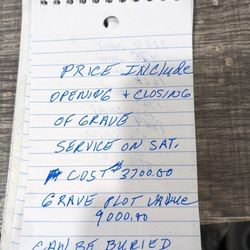 PRICE INCLUDE
OPENING & CLOSING
OF GRAVE
SERVICE ON SAT.
COST $3700.00
GRAVE PLOT VALUE
9000.00
CAN BE BURIED